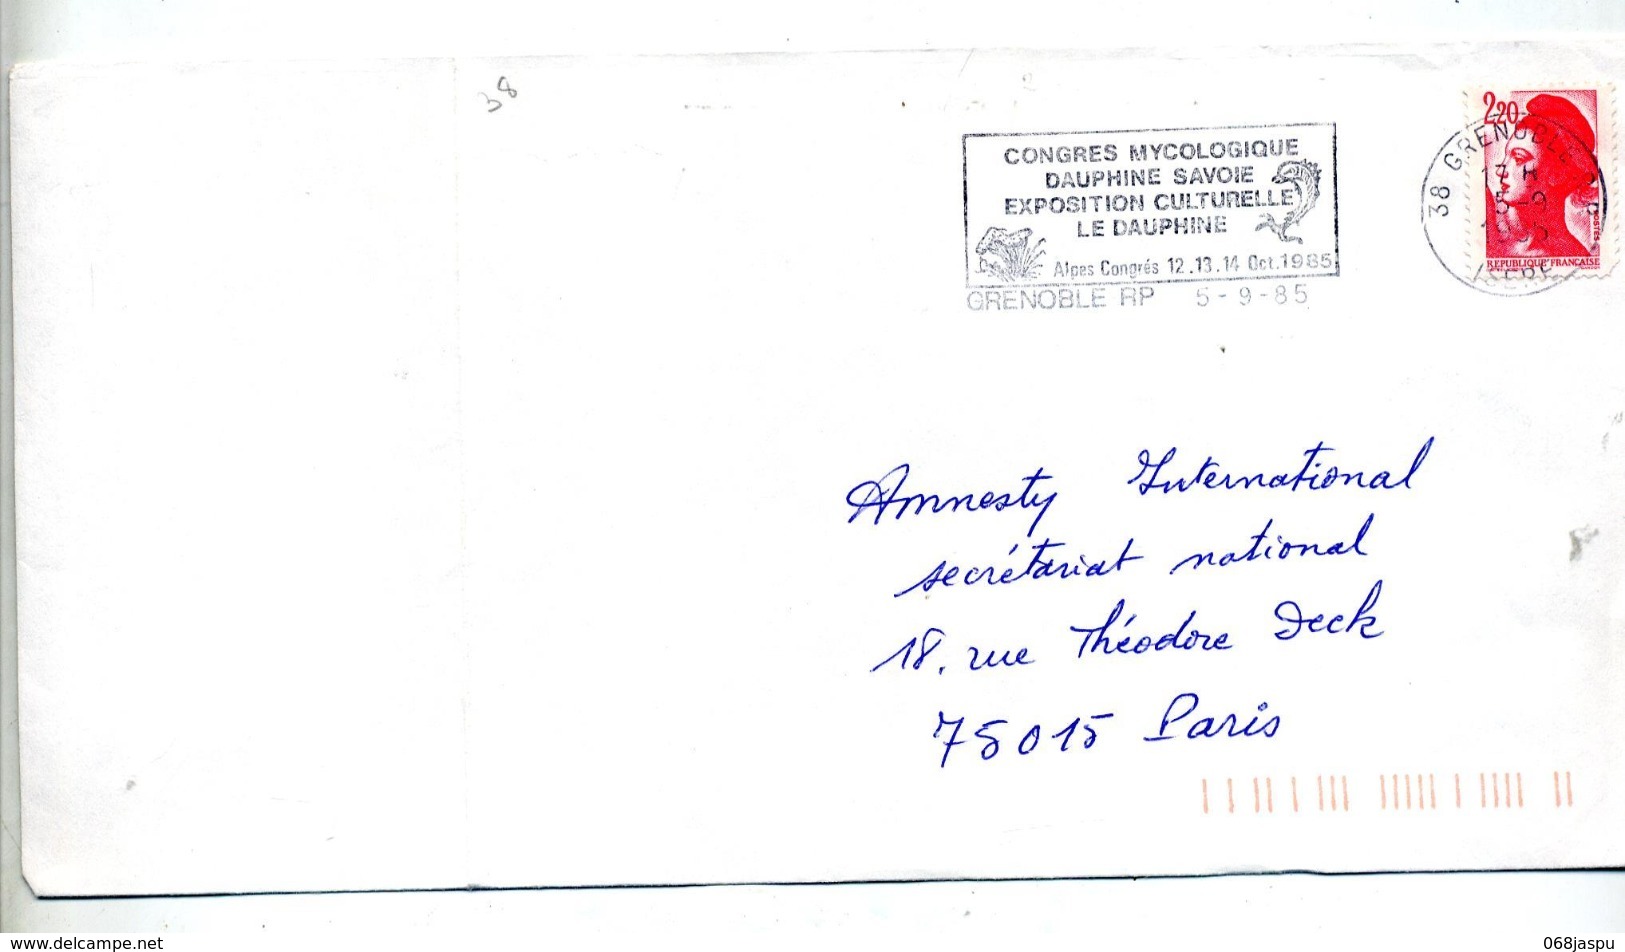 38
CONGRES MYCOLOGIQUE
DAUPHINE SAVOIE
EXPOSITION CULTURELLE
LE DAUPHINE
Alpes Congrés 12.13.14 Oct.1985
GRENOBLE RP 5-9-85
2,20
REPUBLIQUE FRANÇAISE
POSTES
38 GRENOBLE R.P.
17 H
5-9
1985
ISERE
Amnesty International
secrétariat national
18, rue Théodore Deck
75015 Paris
www.delcampe.net
068jaspu